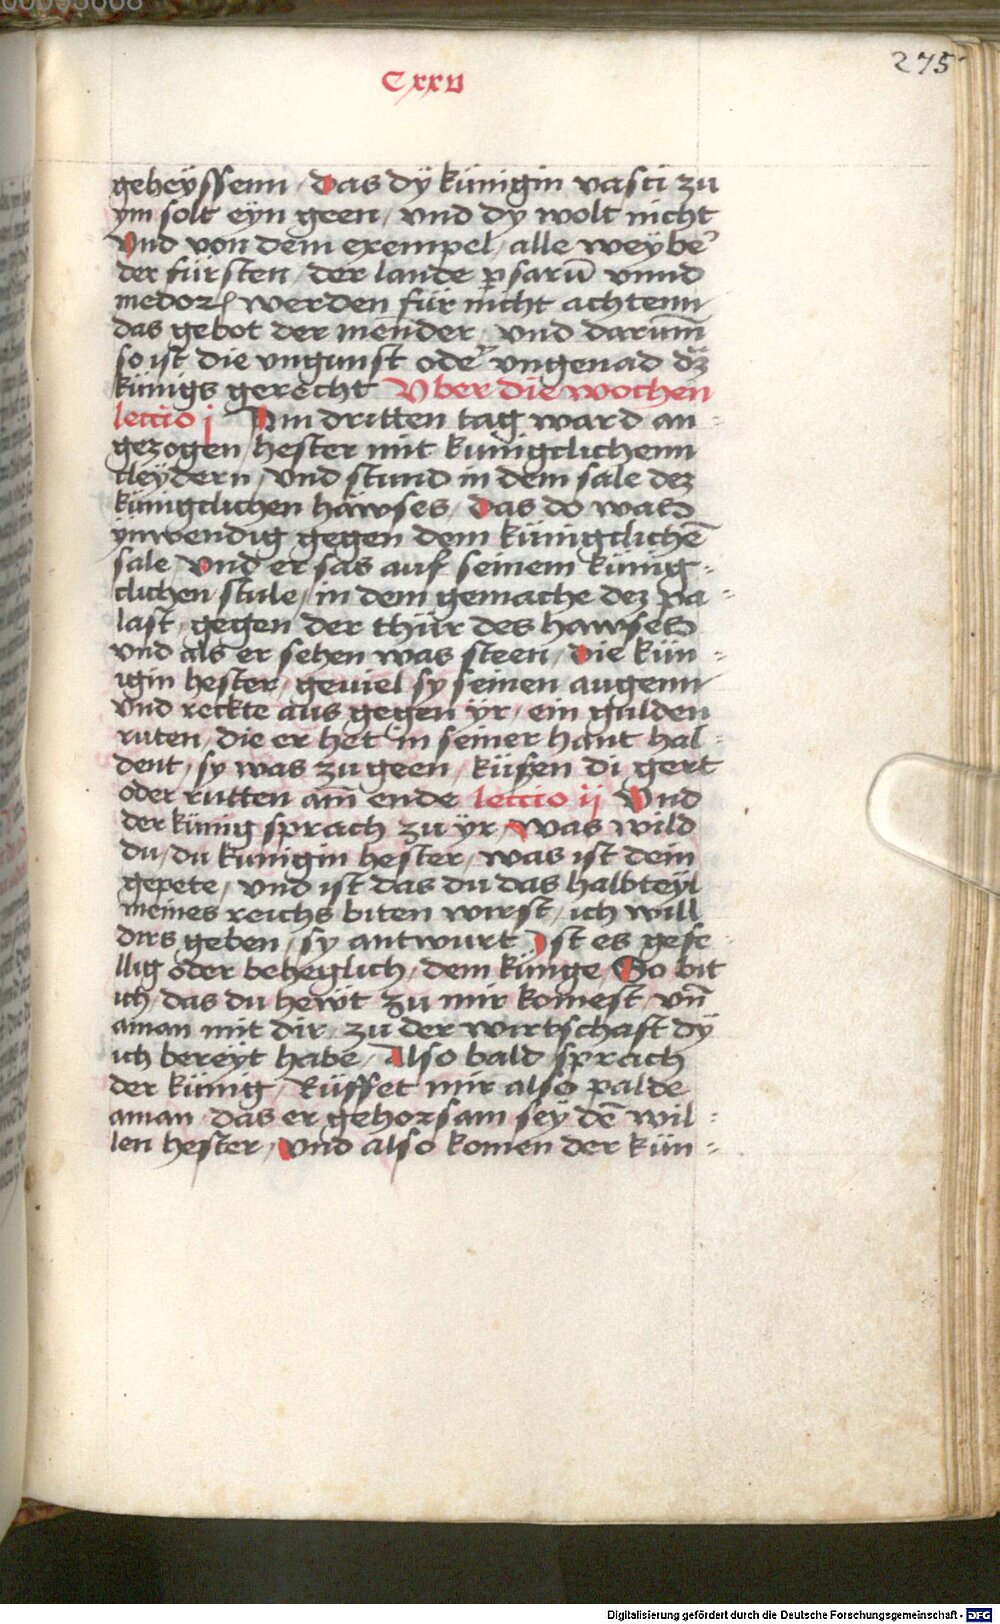 Cxxv
275
geheyssenn / das dÿ künigin vasti zu
ym solt eyn geen / vnd dy wolt nicht
Vnd von dem exempel / alle weybe᷒
der fürsten / der lande ꝑsarū vnnd
medoꝝ werden für nicht achtenn
das gebot der mender / vnd darum̄
so ist die vngunst ode᷒ vngenad dz
künigs gerecht Vber die wochen
lectio j Am dritten tag ward an
gezogen / hester mit künigclichenn
cleydern / vnd stund in dem sale dez
künigclichen häwses / das do was
ynwendig gegen dem künigclichē
sale Vnd er sas auf seinem künig -
clichen stule / in dem gemache dez pa -
last / gegen der thür des hawses
vnd als er sehen was steen / die kün -
igin hester / geuiel sy seinen augenn
Vnd reckte aus gegen ÿr / ein gulden
ruten / die er het in seiner hant hal -
dent / sy was zu geen / küssen di gert
oder rutten am̄ ende lectio ij Vnd
der künig sprach zu ÿr / was wild
du / du kunigin hester / was ist dein
gepete / vnd ist das du das halbteyl
meines reichs biten wirst / ich will
dirs geben / sy antwurt Ist es gefe
llig oder beheglich / dem künge / So bit
ich / das du hewt zu mir komest / vn̄
aman mit dir / zu der wirtschaft dÿ
ich bereyt habe / Also bald sprach
der künig / Rüffet mir also palde
aman / das er gehorsam sey dē wil -
len hester / vnd also komen der kün -
Digitalisierung gefördert durch die Deutsche Forschungsgemeinschaft - DFG